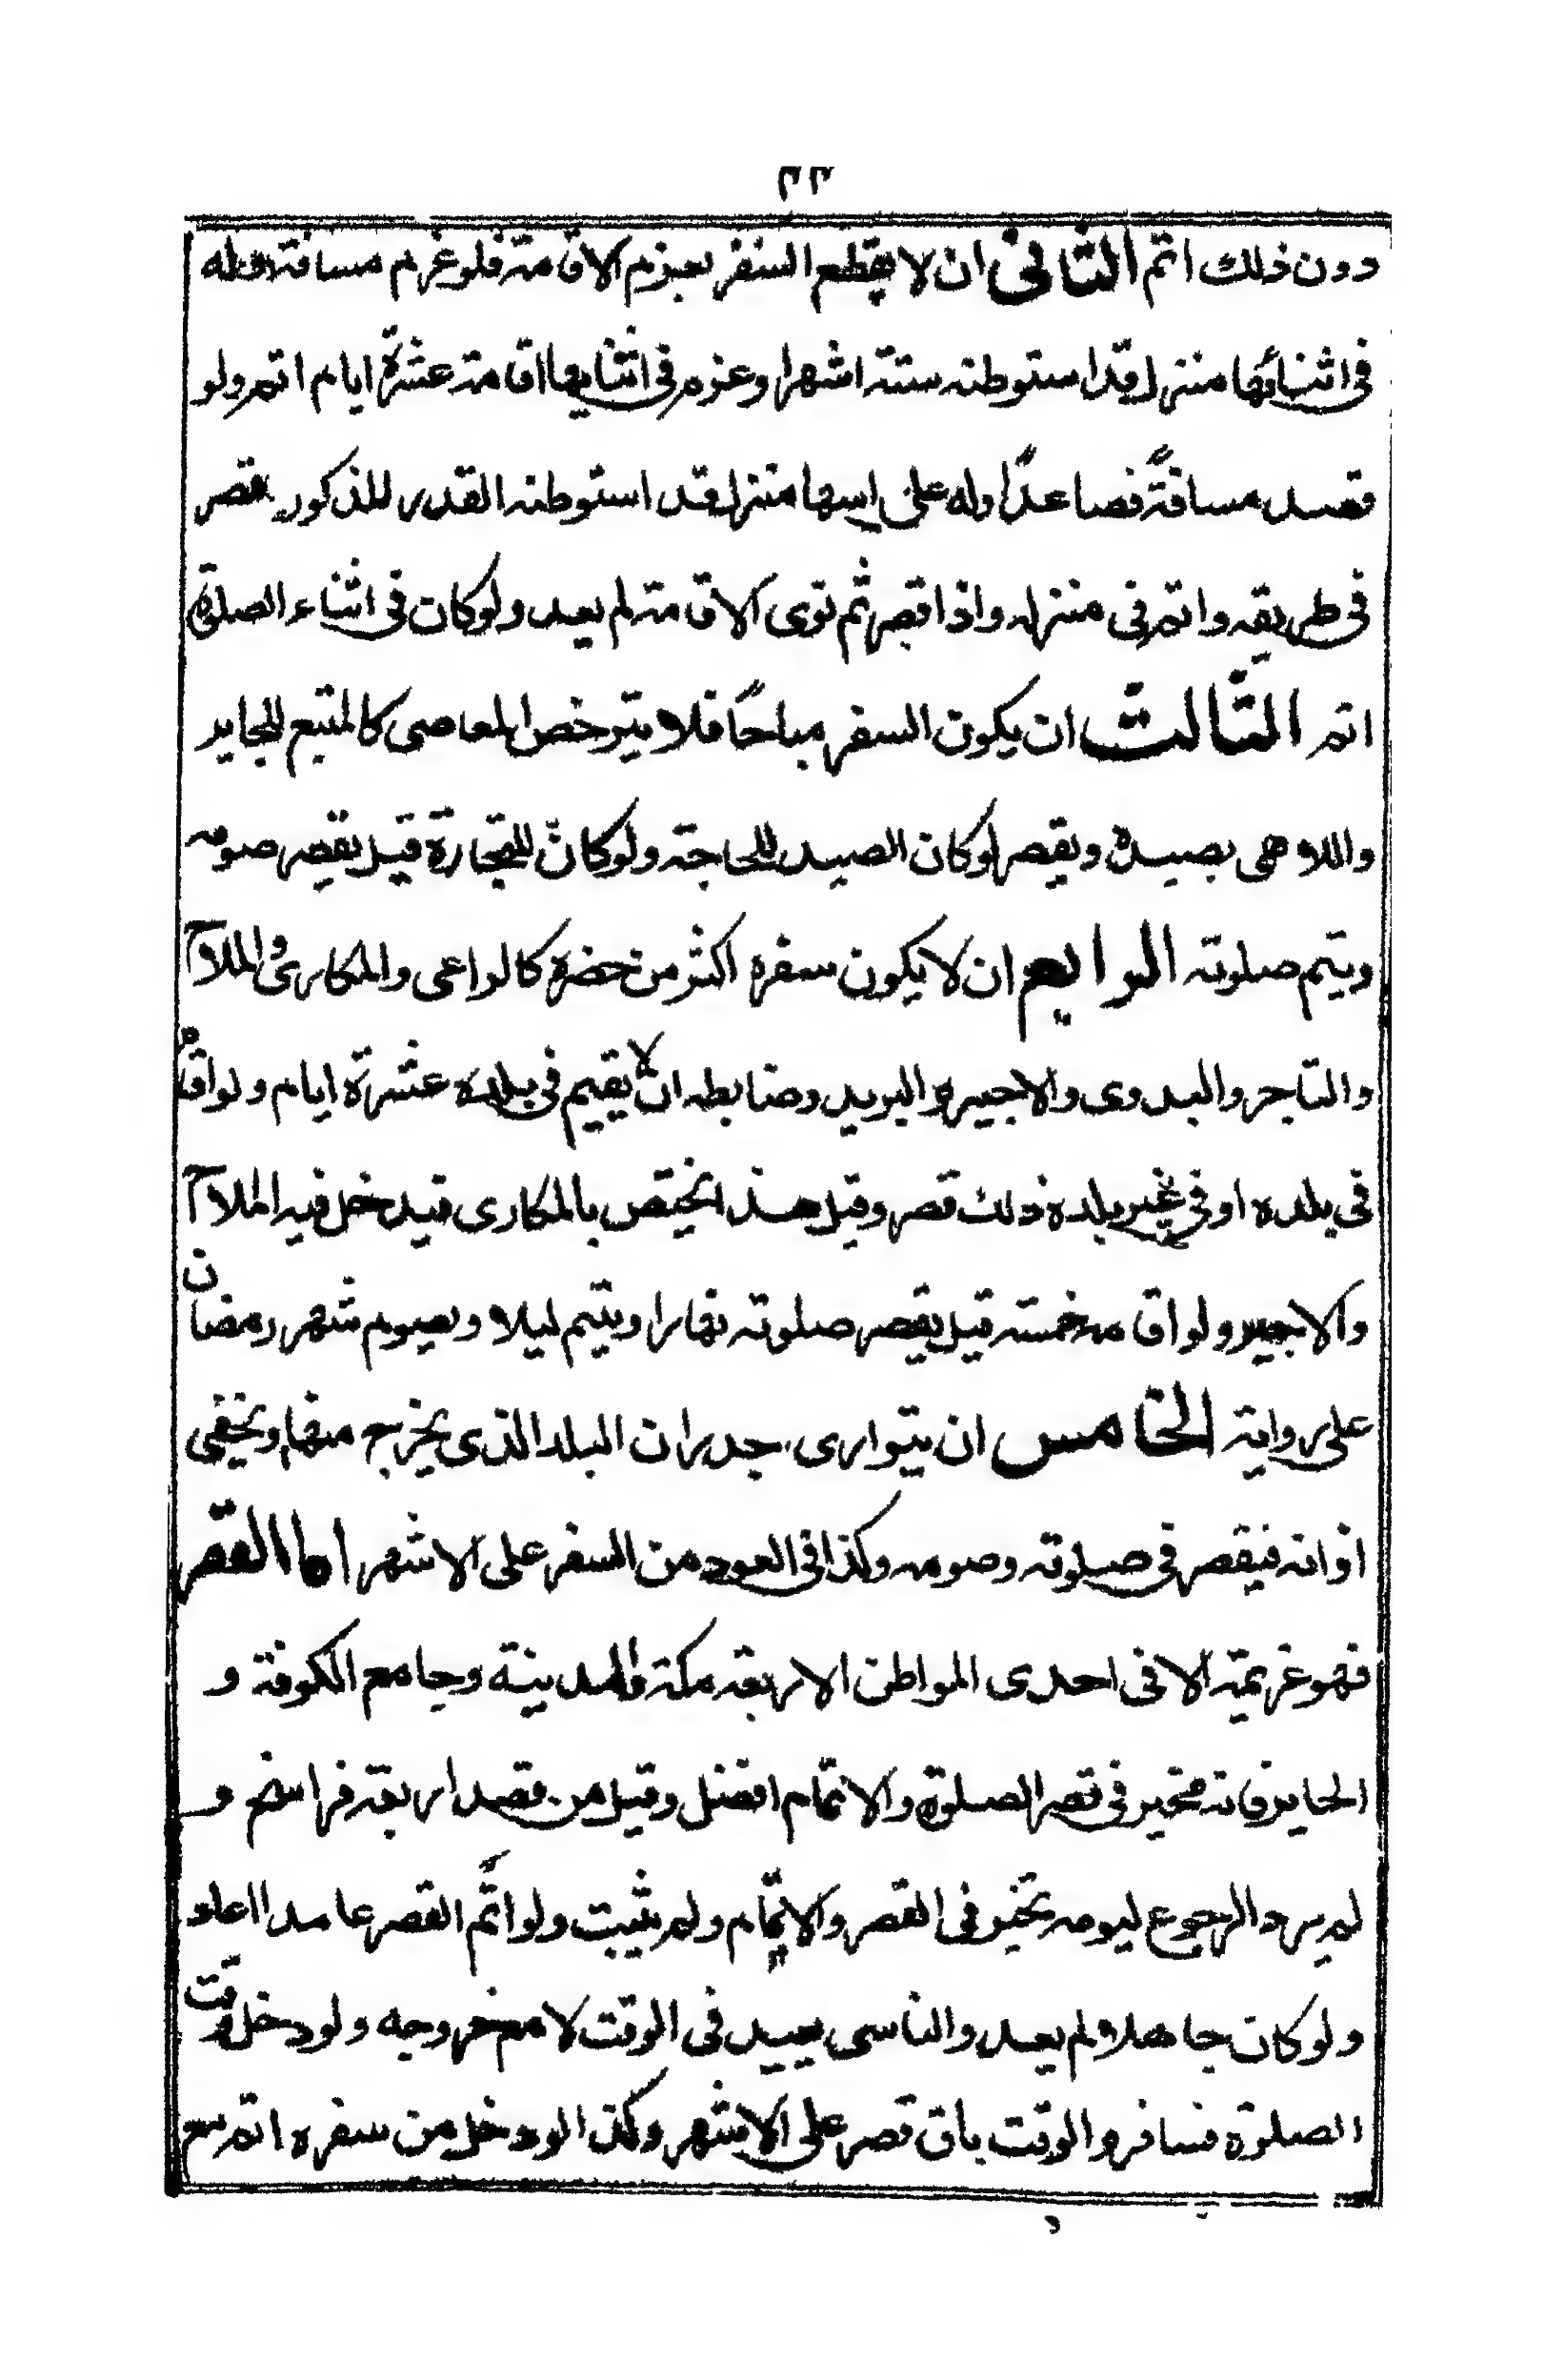 ٢٢
دون ذلك اتم الثانی ان لا یقطع السفر بعزم الاقامة فلو عزم مسافة وله
فی اثنائها منزل قد استوطنه ستة اشهر او عزم فی اثنایها اقامة عشرة ایام اتم ولو
قصد مسافةً فصاعدًا وله علی راسها منزل قد استوطنه القدر المذکور قصر
فی طریقه واتم فی منزله واذا قصر ثم نوی الاقامة لم یعد ولو کان فی اثناء الصلوة
اتم الثالث ان یکون السفر مباحًا فلا یترخص العاصی کالمتبع للجایر
واللاهی بصیده ویقصر لو کان الصید للحاجة ولو کان للتجارة قیل یقصر صومه
ویتم صلوته الرابع ان لا یکون سفره اکثر من حضره کالراعی والمکاری والملاح
والتاجر والبدوی والاجیر والبرید وضابطه ان لا یقیم فی بلده عشرة ایام ولو اقام
فی بلده او فی غیر بلده ذلك قصر وقیل هذا یختص بالمکاری فیدخل فیه الملاح
والاجیر ولو اقام خمسة قیل یقصر صلوته نهارا ویتم لیلا ویصوم شهر رمضان
علی روایة الخامس ان یتواری جدران البلد الذی یخرج منها ویخفی
اذانه فیقصر فی صلوته وصومه وکذا فی العود من السفر علی الاشهر اما القصر
فهو عزیمة الا فی احدی المواطن الاربعة مکة والمدینة وجامع الکوفة و
الحایر فانه مخیر فی قصر الصلوة والاتمام افضل وقیل من قصد اربعة فراسخ و
لم یرد الرجوع لیومه تخیر فی القصر والاتمام ولم یثبت ولو اتم القصر عامدا اعاد
ولو کان جاهلا لم یعد والناسی یعید فی الوقت لا مع خروجه ولو دخل وقت
الصلوة فسافر والوقت باق قصر علی الاشهر وکذا لو دخل من سفره اتم مع